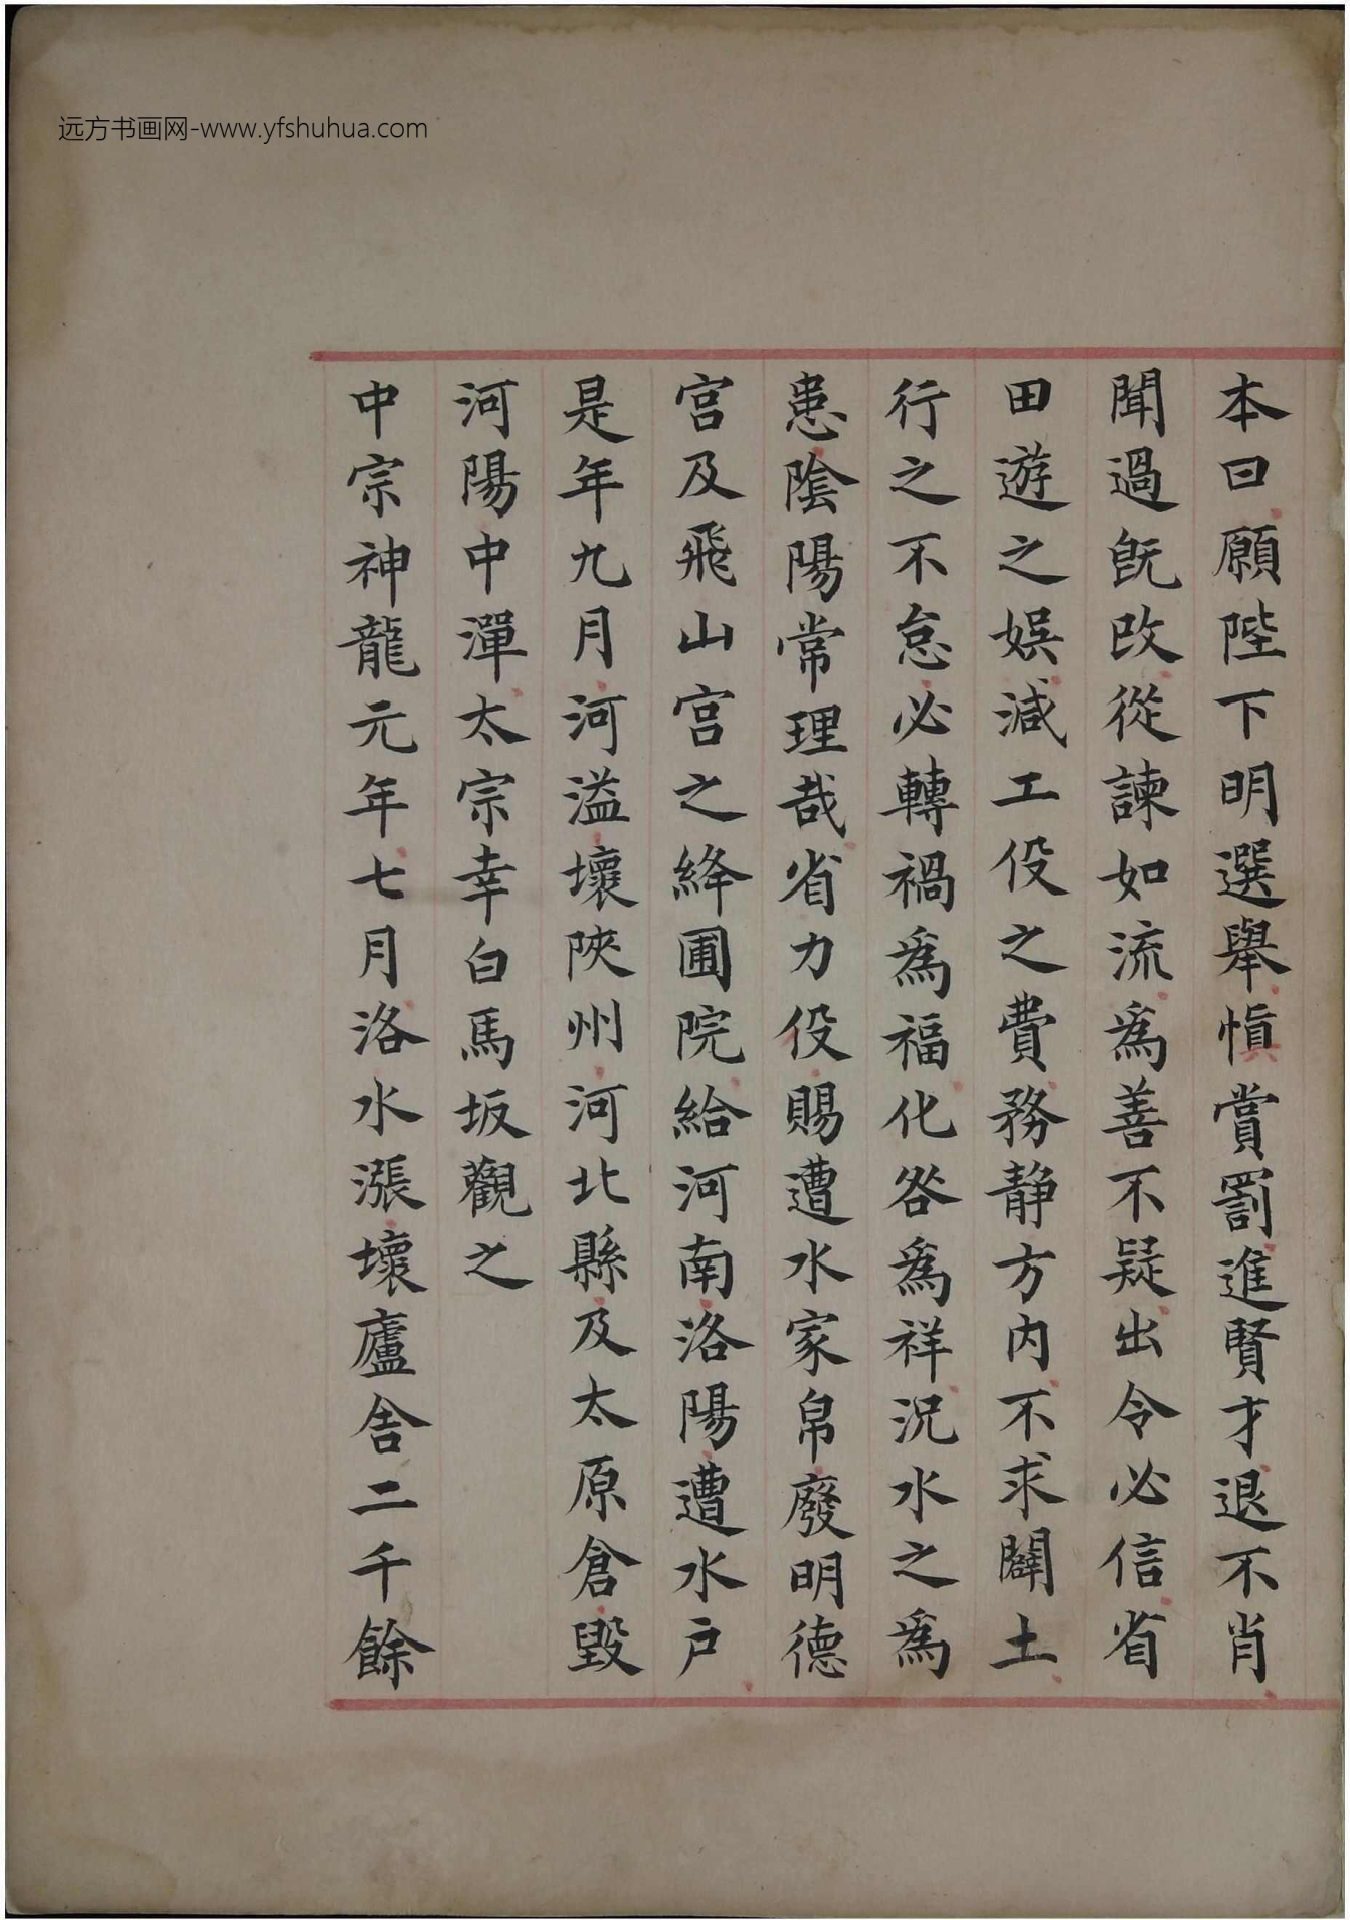 远方书画网-www.yfshuhua.com
本曰願陛下明選舉慎賞罰進賢才退不肖
聞過既改從諫如流為善不疑出令必信省
田遊之娛減工役之費務静方内不求闢土
行之不怠必轉禍為福化咎為祥況水之為
患陰陽常理哉省力役賜遭水家帛廢明德
宮及飛山宮之絳圃院給河南洛陽遭水戶
是年九月河溢壞陝州河北縣及太原倉毀
河陽中潬太宗幸白馬坂觀之
中宗神龍元年七月洛水漲壞廬舍二千餘